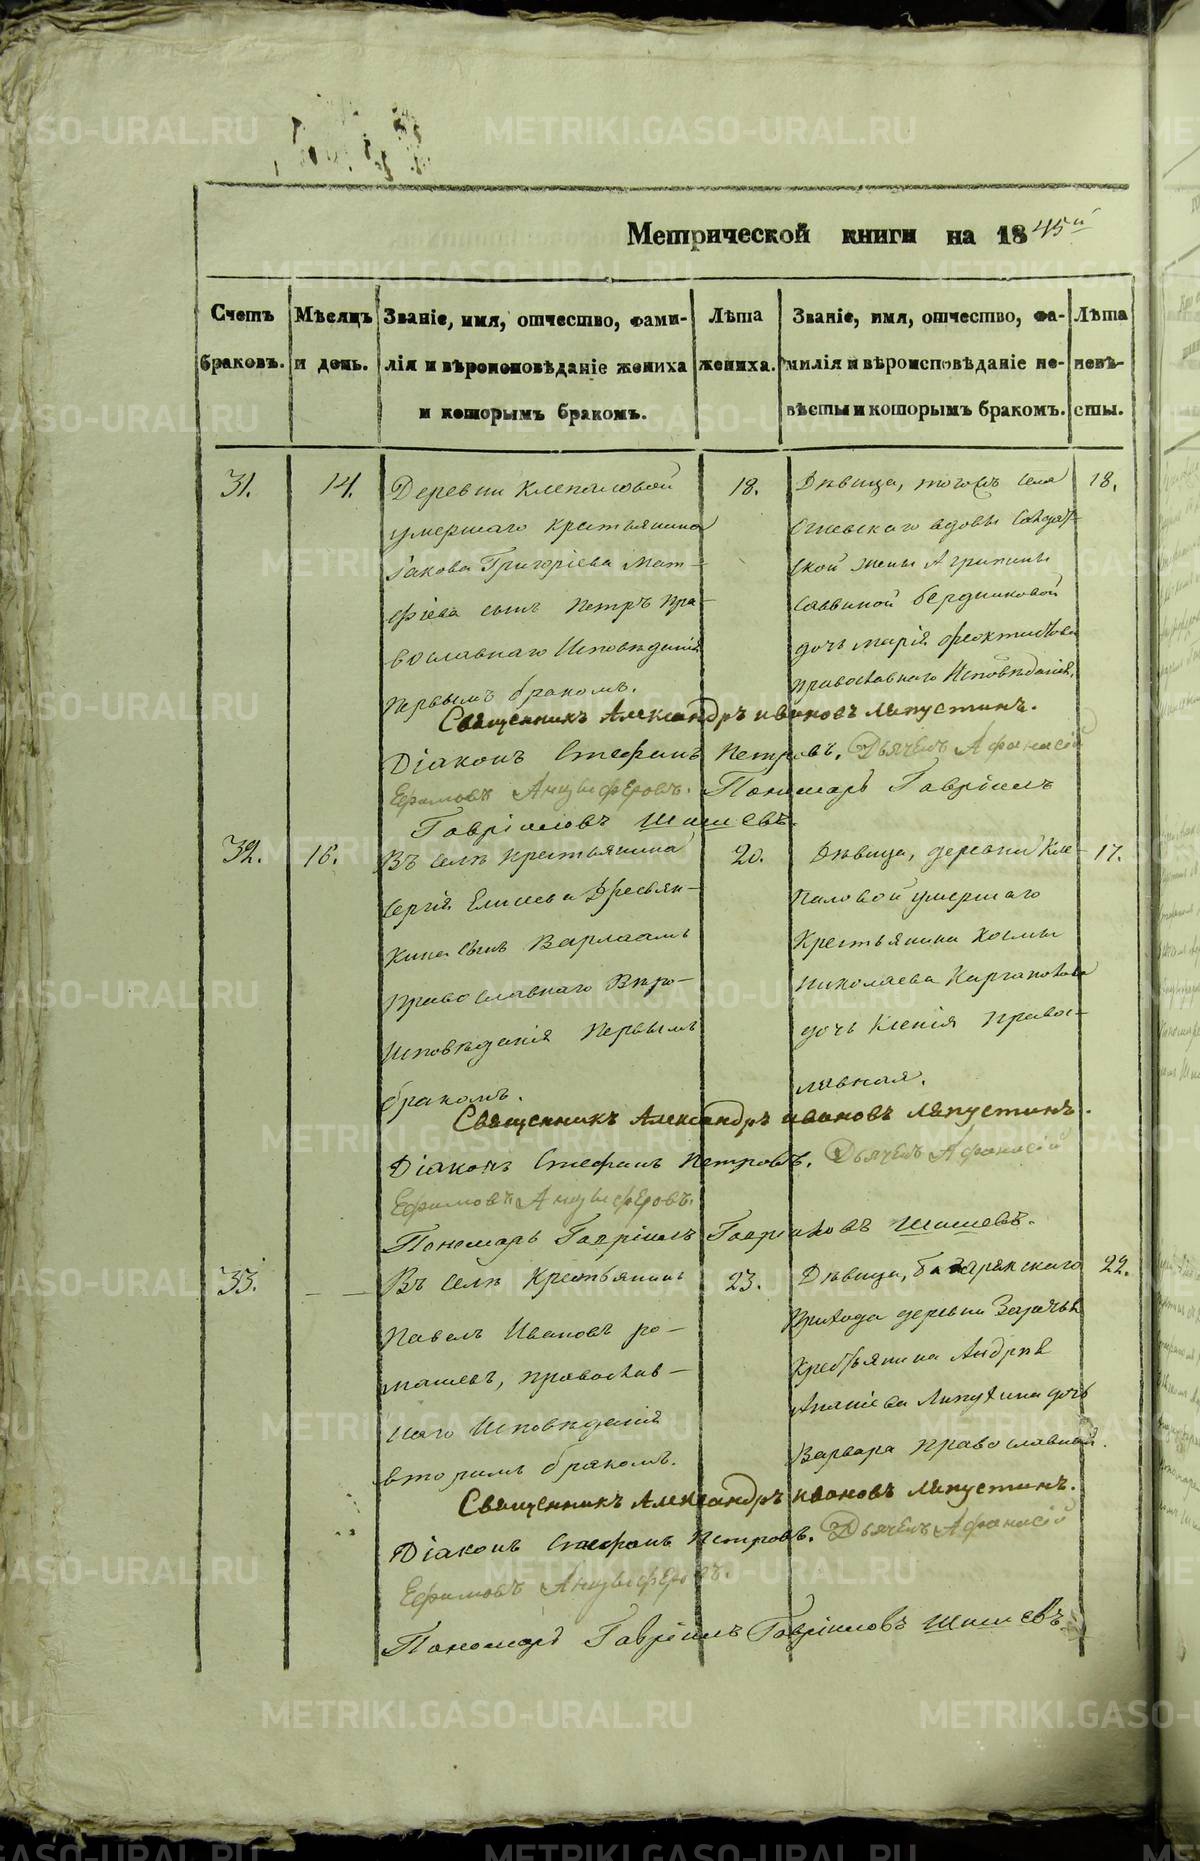 Метрической книги на 1845й
Счетъ браковъ.
Мѣсяцъ и день.
Званіе, имя, отчество, фами-
лія и вѣроисповѣданіе жениха
и которымъ бракомъ.
Лѣта жениха.
Званіе, имя, отчество, фа-
милія и вѣроисповѣданіе не-
вѣсты и которымъ бракомъ.
Лѣта невѣ-
сты.
31.
14.
Деревни Клепаловой
умершаго крестьянина
Іакова Григоріева Мат-
фіева сынъ Петръ пра-
вославнаго Исповѣданія
первымъ бракомъ.
18.
Дѣвица, тогожъ села
вдовы Солдат-
ской жены Агрипины
Саввиной Бердниковой
дочь Марія Феоктистова
православнаго Исповѣданія.
18.
Священникъ Александръ Ивановъ Ляпустинъ.
Діаконъ Стефанъ Петровъ. Дьячекъ Афанасій
Ефимовъ Анцыферовъ. Пономарь Гавріилъ
Гавріиловъ Шишевъ.
32.
16.
Въ селѣ крестьянина
Сергія Елисеева Дресвян-
кина сынъ Варлаамъ
православнаго Вѣро-
исповѣданія первымъ
бракомъ.
20.
Дѣвица, деревни Кле-
паловой умершаго
Крестьянина Космы
Николаева Каргаполова
дочь Ксенія правос-
лавная.
17.
Священникъ Александръ Ивановъ Ляпустинъ.
Діаконъ Стефанъ Петровъ. Дьячекъ Афанасій
Ефимовъ Анцыферовъ.
Пономарь Гавріилъ Гавріиловъ Шишевъ.
33.
— —
Въ селѣ Крестьянинъ
Павелъ Ивановъ Ро-
машевъ, православ-
наго Исповѣданія
вторымъ бракомъ.
23.
Дѣвица,
прихода деревни Зарѣчья
Крестьянина Андрѣя
Ананіева Липухина дочь
Варвара православной.
22.
Священникъ Александръ Ивановъ Ляпустинъ.
Діаконъ Стефанъ Петровъ. Дьячекъ Афанасій
Ефимовъ Анцыферовъ.
Пономарь Гавріилъ Гавріиловъ Шишевъ.
METRIKI.GASO-URAL.RU